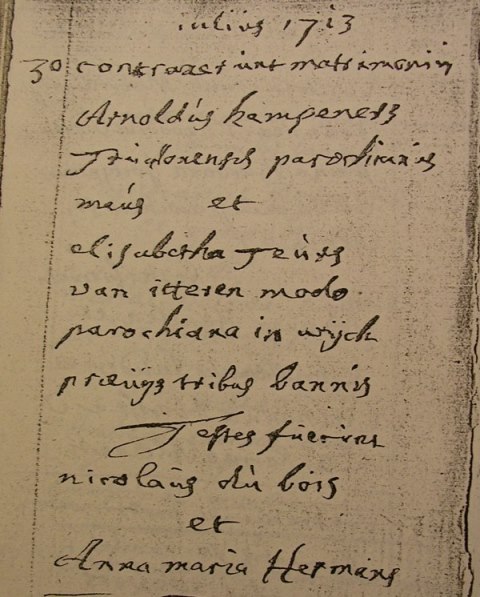 iulius 1713
30 contraxerunt matrimoniu
Arnoldùs hampeners
Trudonensis parochianùs
meùs et
elisabetha Teùrs
van itteren modo
parochiana in wÿck
praeuÿs tribus bannis
Testes fuerunt
nicolaùs dù bois
et
Anna maria Hermans